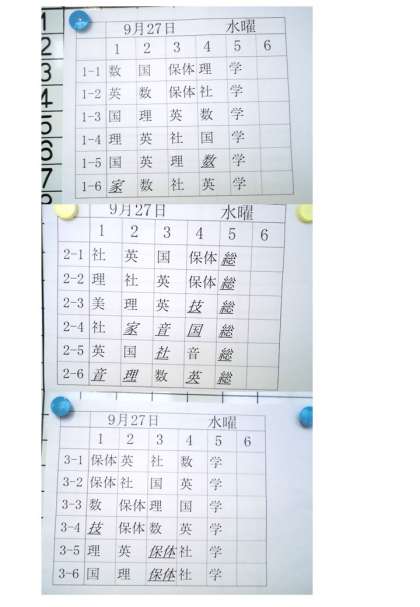 1
2
3
4
5
6
7
9月27日 水曜
1 2 3 4 5 6
1-1 数 国 保体 理 学
1-2 英 数 保体 社 学
1-3 国 理 英 数 学
1-4 理 英 社 国 学
1-5 国 英 理 数 学
1-6 家 数 社 英 学
9月27日 水曜
1 2 3 4 5 6
2-1 社 英 国 保体 総
2-2 理 社 英 保体 総
2-3 美 理 英 技 総
2-4 社 家 音 国 総
2-5 英 国 社 音 総
2-6 音 理 数 英 総
9月27日 水曜
1 2 3 4 5 6
3-1 保体 英 社 数 学
3-2 保体 社 国 英 学
3-3 数 保体 理 国 学
3-4 技 保体 数 英 学
3-5 理 英 保体 社 学
3-6 国 理 保体 社 学